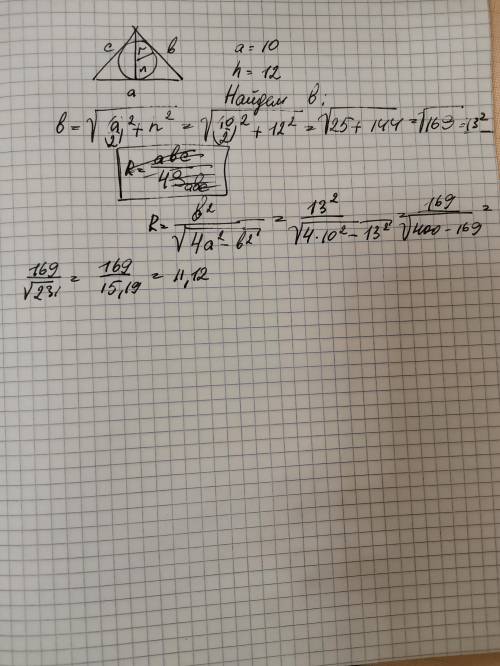 c r b
h
a
a = 10
h = 12
Найдем b:
b = √(a/2)² + h² = √(10/2)² + 12² = √25 + 144 = √169 = 13²
R = abc / 4S abc
R = b² / √4a² - b² = 13² / √4·10² - 13² = 169 / √400 - 169 =
169 / √231 = 169 / 15,19 = 11,12